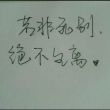 若非死别，
绝不生离。